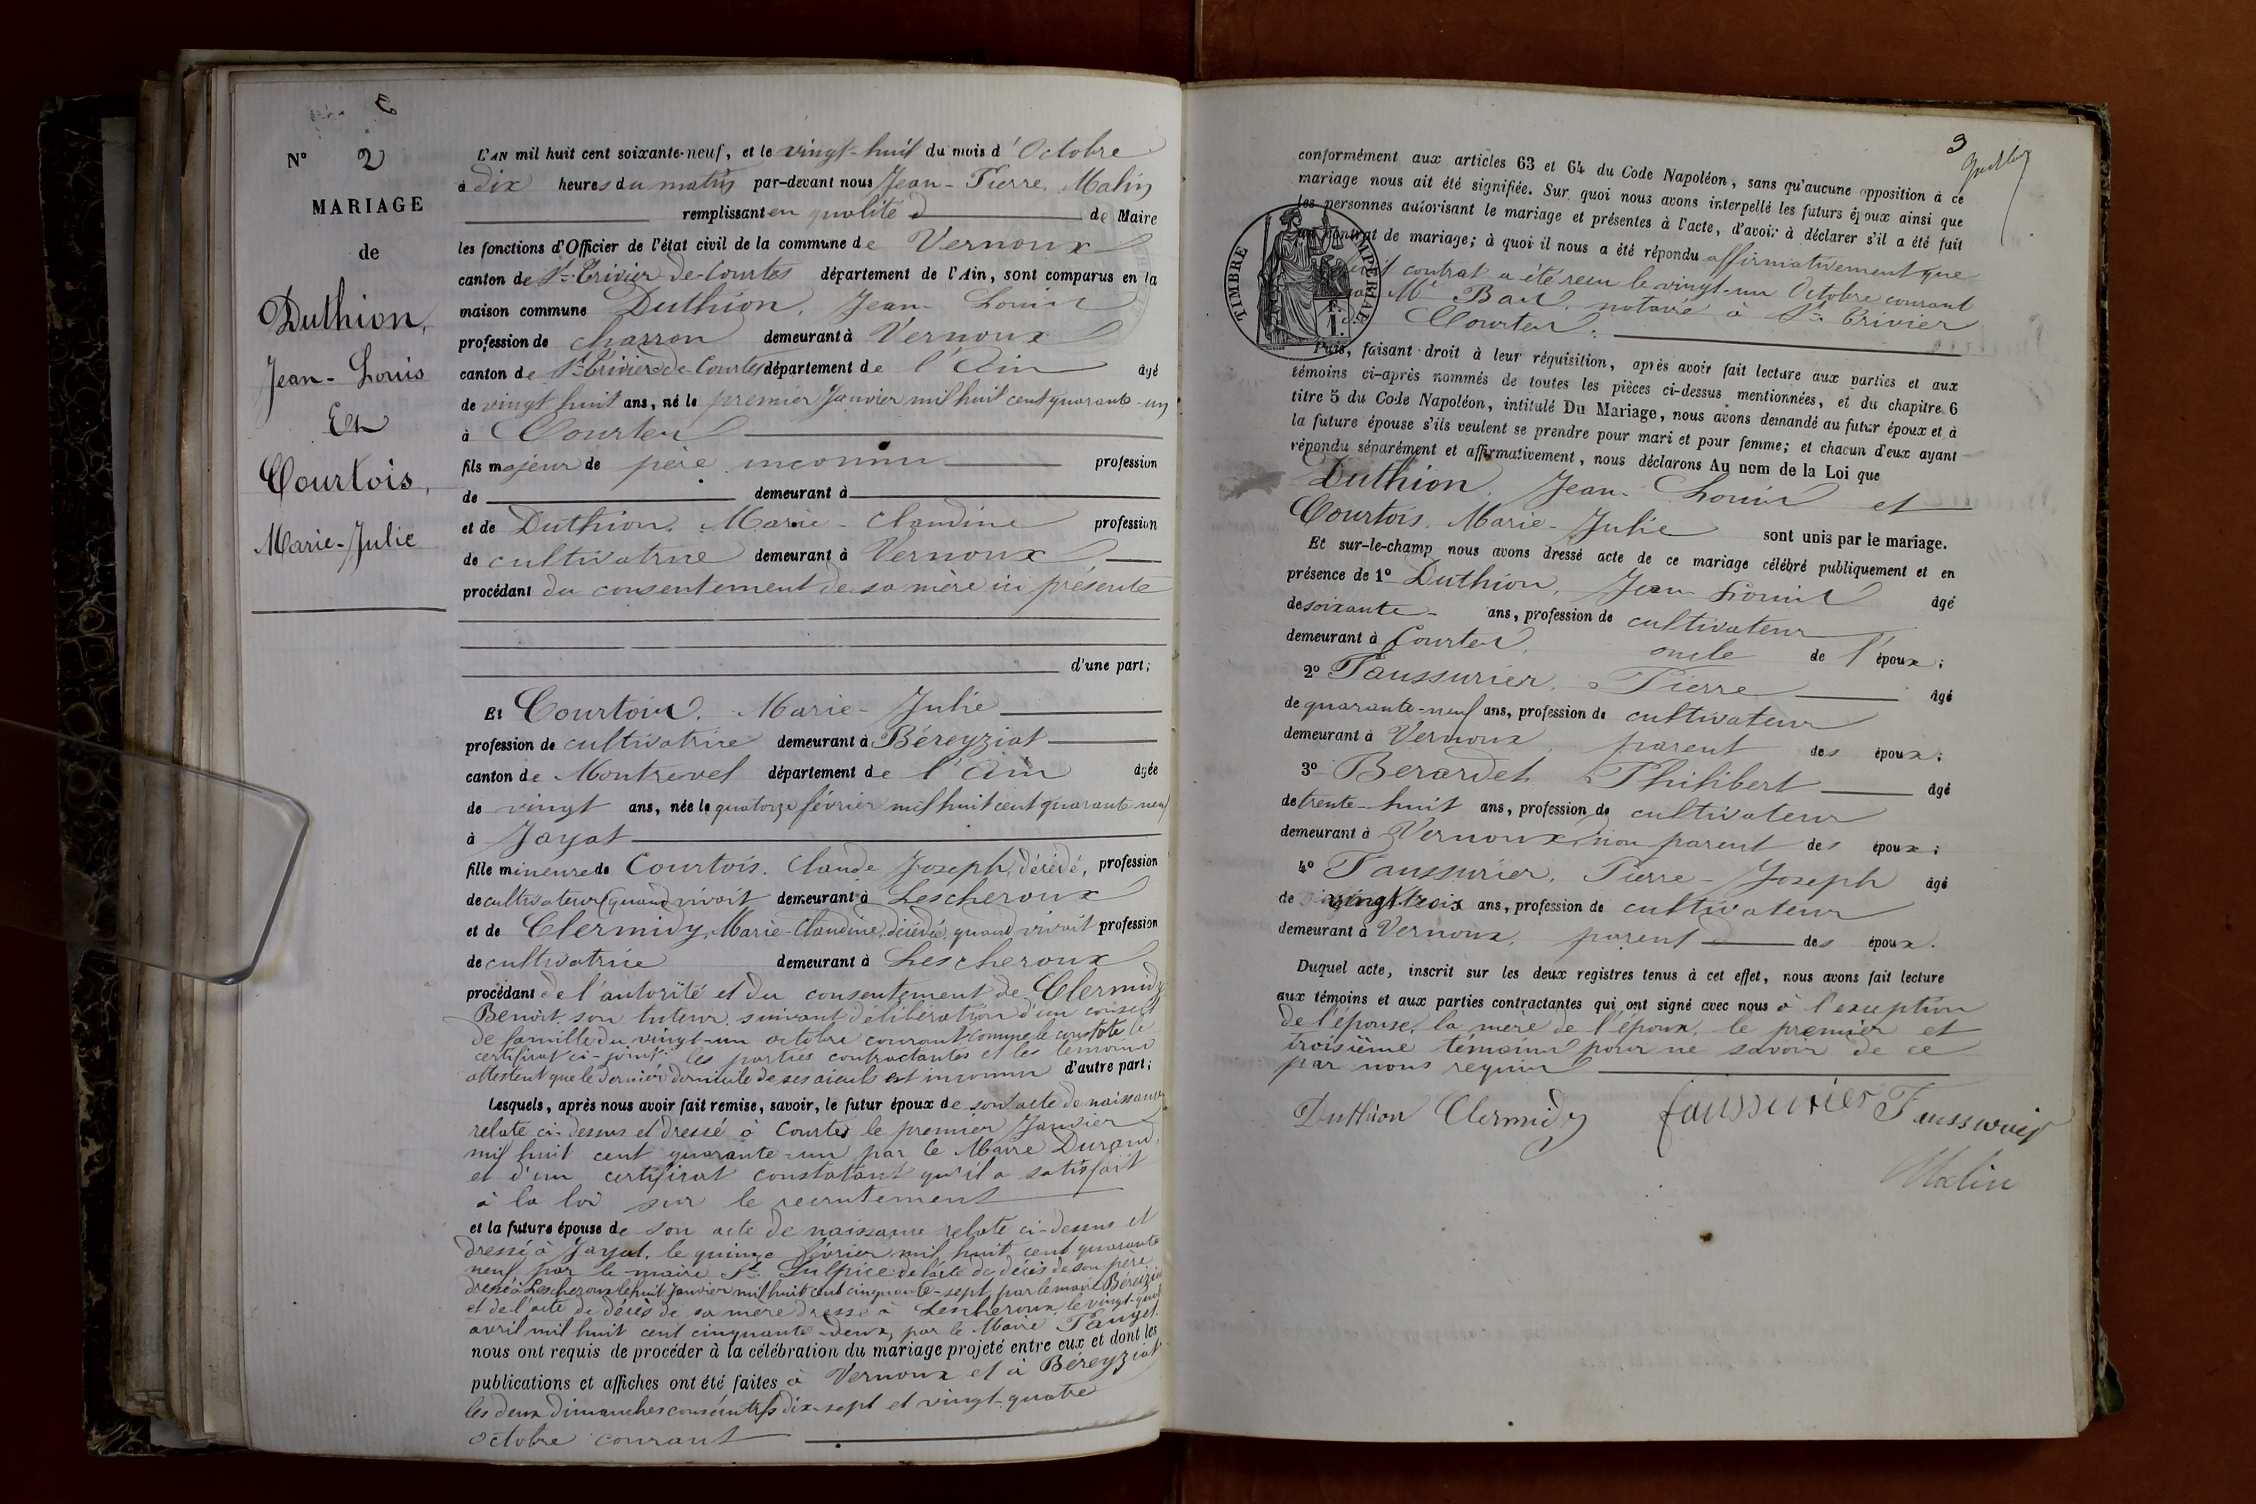 3
N° 2
MARIAGE
de
Duthion,
Jean-Louis
Et
Courtois,
Marie-Julie
L'AN mil huit cent soixante-neuf, et le vingt-huit du mois d'Octobre
à dix heures du matin par-devant nous Jean-Pierre Malin
remplissant en qualité de Maire
les fonctions d'Officier de l'état civil de la commune de Vernoux
canton de St Trivier de Courtes département de l'Ain, sont comparus en la
maison commune Duthion, Jean Louis
profession de charron demeurant à Vernoux
canton de St Trivier de Courtes département de l'Ain âgé
de vingt huit ans, né le premier Janvier mil huit cent quarante-un
à Courtes
fils majeur de père inconnu profession
de demeurant à
et de Duthion, Marie-Claudine profession
de cultivatrice demeurant à Vernoux
procédant du consentement de sa mère ici présente
d'une part;
Et Courtois, Marie-Julie
profession de cultivatrice demeurant à Béreyziat
canton de Montrevel département de l'Ain âgée
de vingt ans, née le quatorze février mil huit cent quarante neuf
à Jayat
fille mineure de Courtois, Claude Joseph, décédé, profession
de cultivateur quand vivait demeurant à Lescheroux
et de Clermidy, Marie-Claudine, décédée, quand vivait profession
de cultivatrice demeurant à Lescheroux
procédant de l'autorité et du consentement de Clermidy
Benoit son tuteur suivant délibération d'un conseil
de famille du vingt-un octobre courant comme le constate le
certificat ci-joint les parties contractantes et les témoins
attestent que le dernier domicile de ses aïeuls est inconnu d'autre part;
Lesquels, après nous avoir fait remise, savoir, le futur époux de son acte de naissance
relaté ci-dessus et dressé à Courtes le premier Janvier
mil huit cent quarante-un par le Maire Durand,
et d'un certificat constatant qu'il a satisfait
à la loi sur le recrutement
et la future épouse de son acte de naissance relaté ci-dessus et
dressé à Jayat, le quinze février mil huit cent quarante
neuf par le maire St Sulpice de l'acte de décès de son père
dressé à Lescheroux le huit janvier mil huit cent cinquante-sept par le maire Béreiziat
et de l'acte de décès de sa mère dressé à Lescheroux le vingt-
avril mil huit cent cinquante-deux, par le Maire Pauget.
nous ont requis de procéder à la célébration du mariage projeté entre eux et dont les
publications et affiches ont été faites à Vernoux et à Béreyziat
les deux dimanches consécutifs dix-sept et vingt-quatre
octobre courant
3
conformément aux articles 63 et 64 du Code Napoléon, sans qu'aucune opposition à ce
mariage nous ait été signifiée. Sur quoi nous avons interpellé les futurs époux ainsi que
les personnes autorisant le mariage et présentes à l'acte, d'avoir à déclarer s'il a été fait
un contrat de mariage; à quoi il nous a été répondu affirmativement que
contrat a été reçu le vingt-un Octobre courant
Me notaire à St Trivier
Courtes.
TIMBRE IMPERIALE
1 F.
Puis, faisant droit à leur réquisition, après avoir fait lecture aux parties et aux
témoins ci-après nommés de toutes les pièces ci-dessus mentionnées, et du chapitre 6
titre 5 du Code Napoléon, intitulé Du Mariage, nous avons demandé au futur époux et à
la future épouse s'ils veulent se prendre pour mari et pour femme; et chacun d'eux ayant
répondu séparément et affirmativement, nous déclarons Au nom de la Loi que
Duthion, Jean-Louis et
Courtois, Marie-Julie sont unis par le mariage.
Et sur-le-champ nous avons dressé acte de ce mariage célébré publiquement et en
présence de 1° Duthion, Jean Louis âgé
de soixante ans, profession de cultivateur
demeurant à Courtes, oncle de l'époux;
2° Faussurier, Pierre âgé
de quarante-neuf ans, profession de cultivateur
demeurant à Vernoux, parent des époux;
3° Berardet Philibert âgé
de trente-huit ans, profession de cultivateur
demeurant à Vernoux, non parent des époux;
4° Faussurier, Pierre-Joseph âgé
de vingt trois ans, profession de cultivateur
demeurant à Vernoux, parent des époux.
Duquel acte, inscrit sur les deux registres tenus à cet effet, nous avons fait lecture
aux témoins et aux parties contractantes qui ont signé avec nous à l'exception
de l'épouse, la mère de l'époux, le premier et
troisième témoins pour ne savoir de ce
par nous requis
Duthion Clermidy faussurier Faussurier
Malin